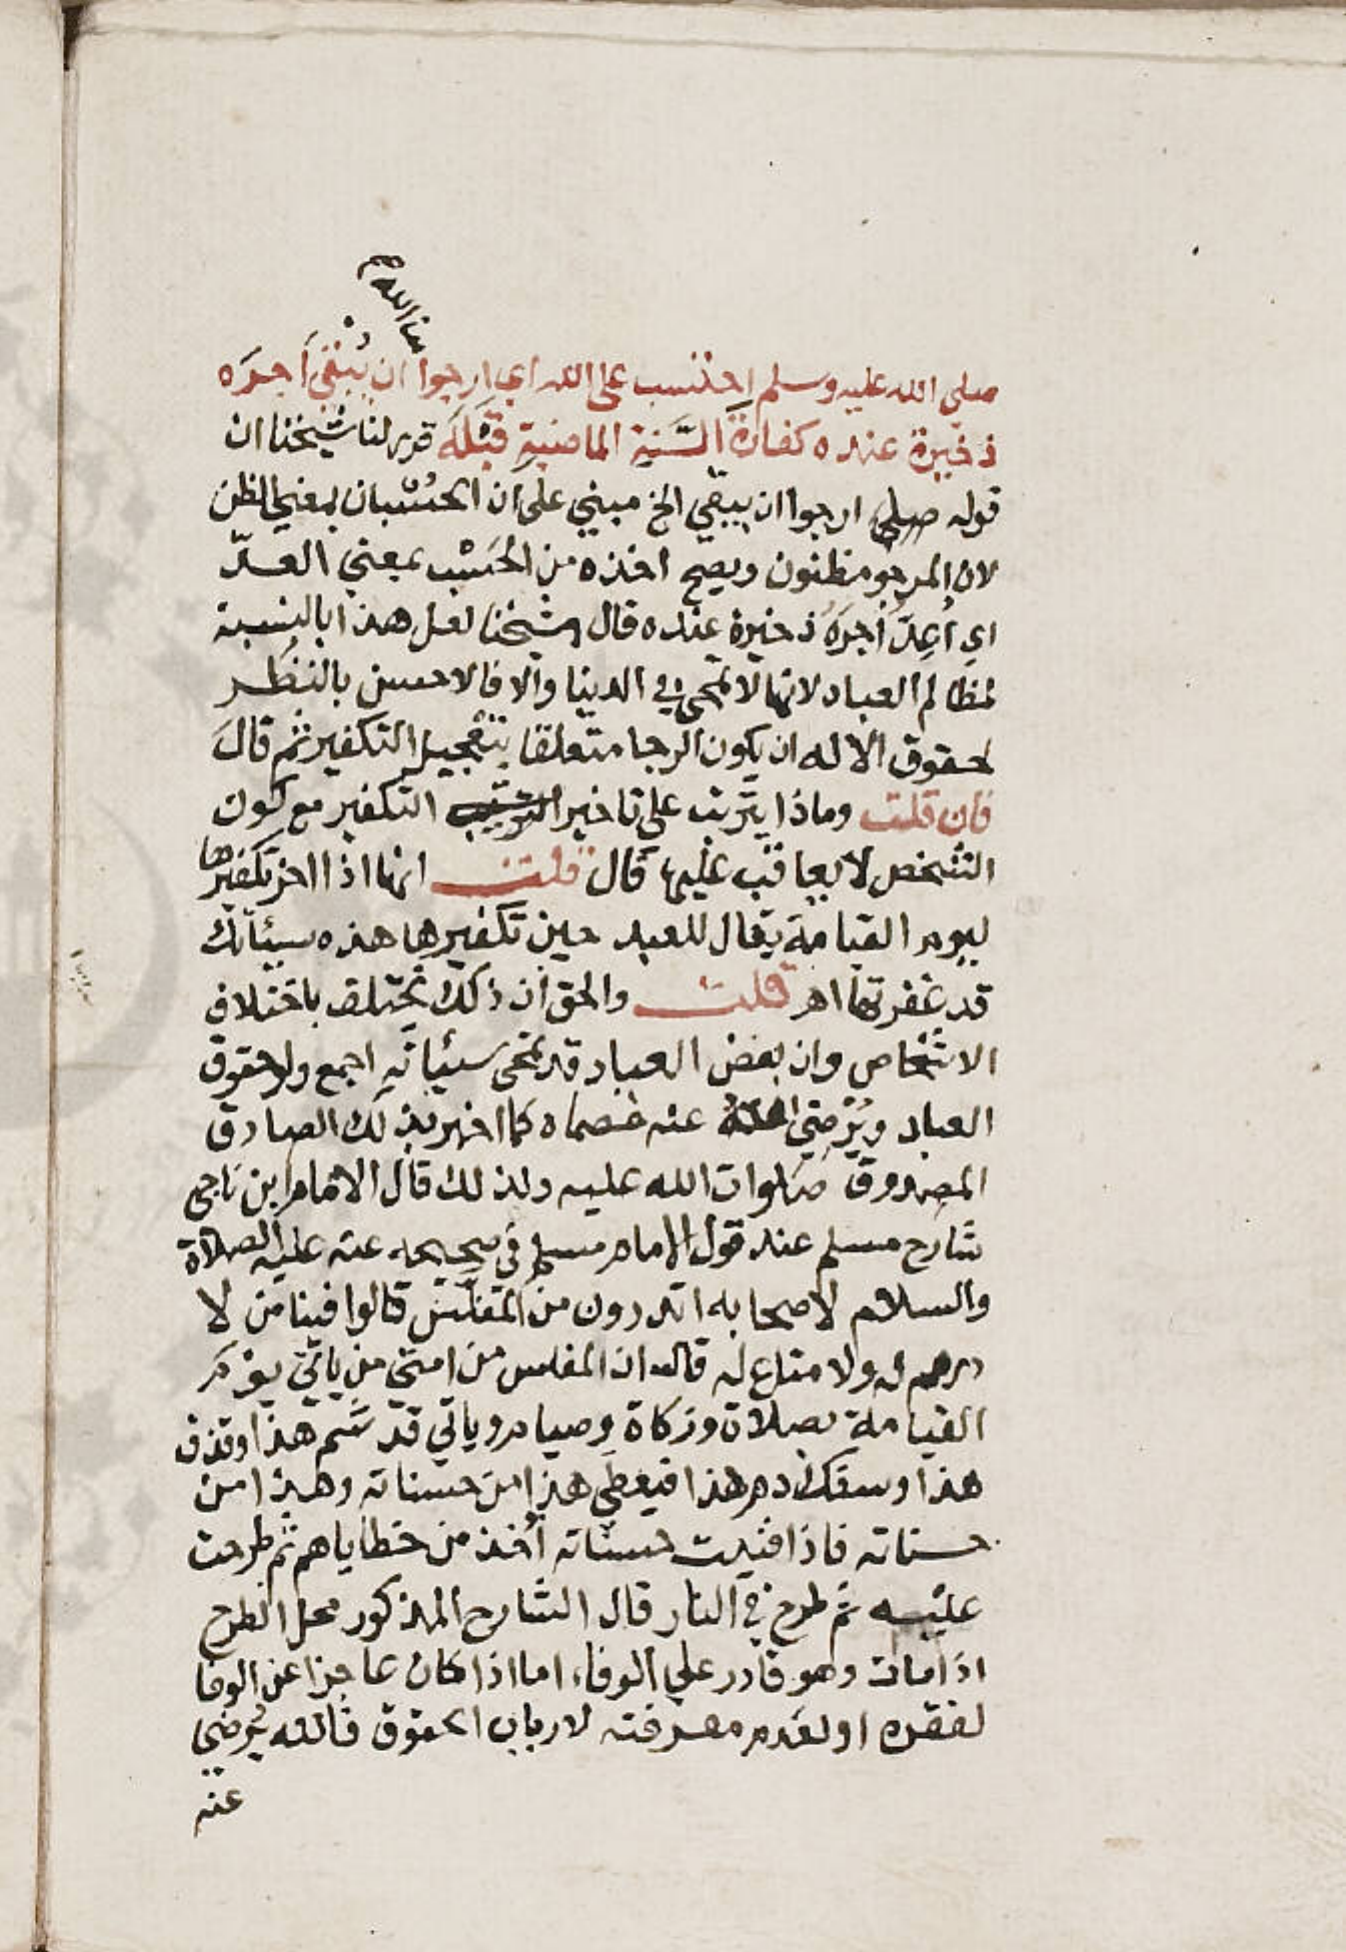 من الله صح
صلى الله عليه وسلم احتسب على الله اي ارجوا ان يُبْقَى أجرَه
ذخيرة عنده كفارة السَّنة الماضية قبْلَه قرر لنا شيخنا ان
قوله صلى ارجوا ان يبقي الخ مبني على ان الحُسْبان بمعني الظن
لان المرجو مظنون ويصح اخذه من الحَسْب بمعني العدّ
اي أعِدّ أجرَهُ ذخيرة عنده قال شيخنا لعل هذا بالنسبة
لمظالم العباد لانها لا تمحى في الدنيا والا فالاحسن بالنظر
لحقوق الاله ان يكون الرجا متعلقا بتعجيل التكفير ثم قال
فان قلت وماذا يترتب علي تاخير التكفير مع كون
الشخص لا يعاقب عليها قال قلت انها اذا اخر تكفيرها
ليوم القيامة يقال للعبد حين تكفيرها هذه سيئاتك
قد غفرتها اهـ قلت والحق ان ذلك يختلف باختلاف
الاشخاص وان بعض العباد قد تمحى سيئاته اجمع ولو حقوق
العباد ويُرْضي الله عنه خصماه كما اخبر بذلك الصادق
المصدوق صلوات الله عليه ولذلك قال الامام ابن ناجي
شارح مسلم عند قول الامام مسلم في صحيحه عنه عليه الصلاة
والسلام لاصحابه اتدرون من المفلس قالوا فينا من لا
درهم له ولا متاع له قال ان المفلس من امتي من ياتي يوم
القيامة بصلاة وزكاة وصيام وياتي قد شتم هذا وقذف
هذا وسفك دم هذا فيعطى هذا من حسناته وهذا من
حسناته فاذا فنيت حسناته أُخذ من خطاياهم ثم طرحت
عليه ثم طرح في النار قال الشارح المذكور محل الطرح
اذا مات وهو قادر علي الوفاء اما اذا كان عاجزا عن الوفا
لفقره او لعدم معرفته لارباب الحقوق فالله يُرضي
عنه